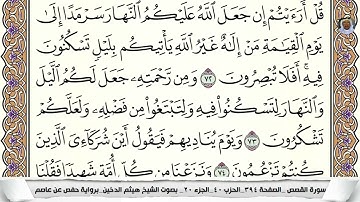 قُلْ أَرَءَيْتُمْ إِن جَعَلَ ٱللَّهُ عَلَيْكُمُ ٱلنَّهَارَ سَرْمَدًا إِلَىٰ
يَوْمِ ٱلْقِيَٰمَةِ مَنْ إِلَٰهٌ غَيْرُ ٱللَّهِ يَأْتِيكُم بِلَيْلٍ تَسْكُنُونَ
فِيهِ ۖ أَفَلَا تُبْصِرُونَ ٧٢ وَمِن رَّحْمَتِهِۦ جَعَلَ لَكُمُ ٱلَّيْلَ
وَٱلنَّهَارَ لِتَسْكُنُوا۟ فِيهِ وَلِتَبْتَغُوا۟ مِن فَضْلِهِۦ وَلَعَلَّكُمْ
تَشْكُرُونَ ٧٣ وَيَوْمَ يُنَادِيهِمْ فَيَقُولُ أَيْنَ شُرَكَآءِىَ ٱلَّذِينَ
كُنتُمْ تَزْعُمُونَ ٧٤ وَنَزَعْنَا مِن كُلِّ أُمَّةٍ شَهِيدًا فَقُلْنَا
سورة القصص _ الصفحة ٣٩٤ _ الحزب ٤٠ _ الجزء ٢٠ _ بصوت الشيخ هيثم الدخين _ برواية حفص عن عاصم